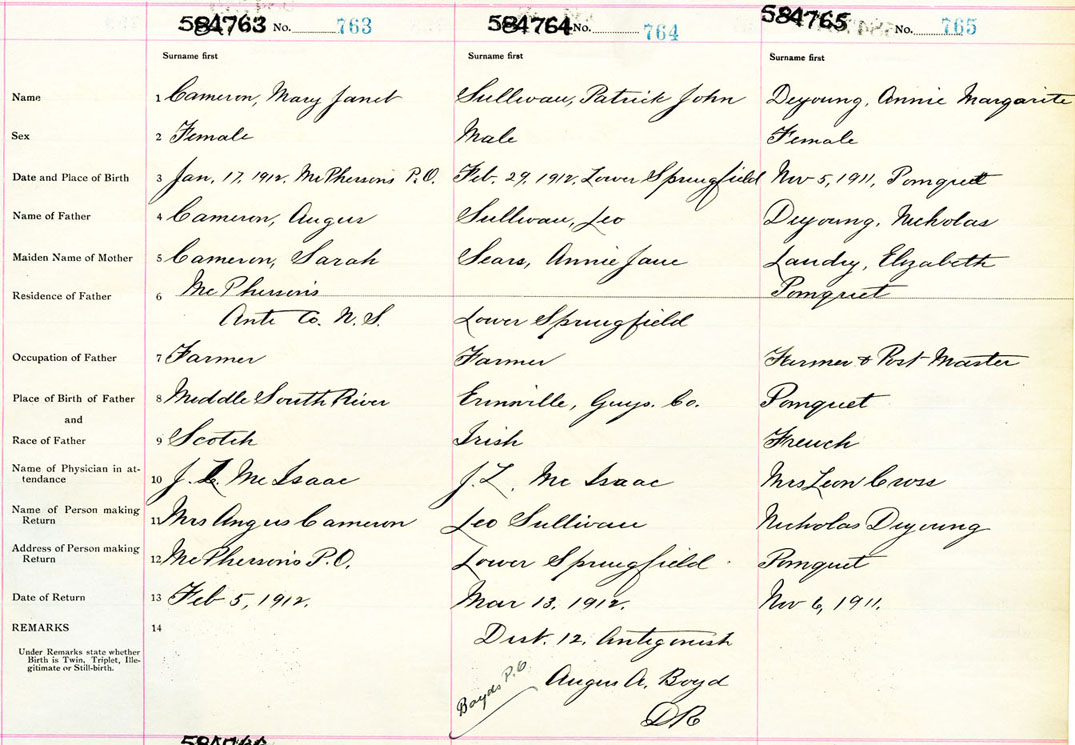 584763 No. 763 584764 No. 764 584765 No. 765
Surname first Surname first Surname first
Name 1 Cameron, Mary Janet Sullivan, Patrick John Deyoung, Annie Margarite
Sex 2 Female Male Female
Date and Place of Birth 3 Jan. 17, 1912. McPhersons P.O. Feb. 29, 1912, Lower Springfield Nov 5, 1911, Pomquet
Name of Father 4 Cameron, Angus Sullivan, Leo Deyoung, Nicholas
Maiden Name of Mother 5 Cameron, Sarah Sears, Annie Jane Landry, Elizabeth
Residence of Father 6 McPhersons Pomquet
Ante Co. N.S. Lower Springfield
Occupation of Father 7 Farmer Farmer Farmer & Post Master
Place of Birth of Father 8 Middle South River Erinville, Guys. Co. Pomquet
and
Race of Father 9 Scotch Irish French
Name of Physician in at-
tendance 10 J. L. McIsaac J. L. Mc Isaac Mrs Leon Cross
Name of Person making
Return 11 Mrs Angus Cameron Leo Sullivan Nicholas Deyoung
Address of Person making
Return 12 McPhersons P.O. Lower Springfield Pomquet
Date of Return 13 Feb 5, 1912. Mar 13, 1912. Nov 6, 1911.
REMARKS 14 Dist. 12, Antigonish
Under Remarks state whether
Birth is Twin, Triplet, Ille-
gitimate or Still-birth.
Boyds P.O Angus A. Boyd
DR